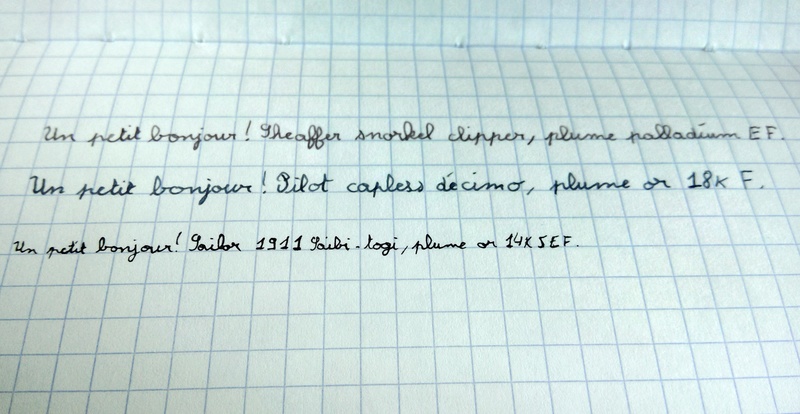 Un petit bonjour! Sheaffer snorkel clipper, plume palladium EF.
Un petit bonjour! Pilot capless décimo, plume or 18K F.
Un petit bonjour! Sailor 1911 Saibi-togi, plume or 14K SEF.